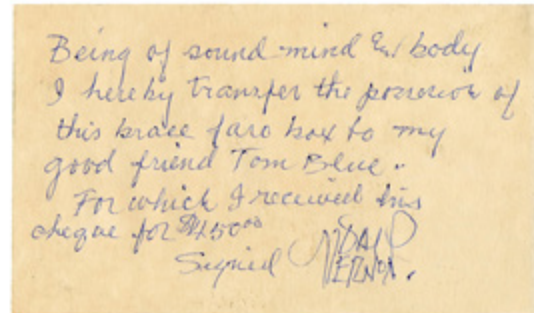 Being of sound mind & body
I hereby transfer the possession of
this brace faro box to my
good friend Tom Blue.
For which I received his
cheque for $450⁰⁰
Signed DAI VERNON.